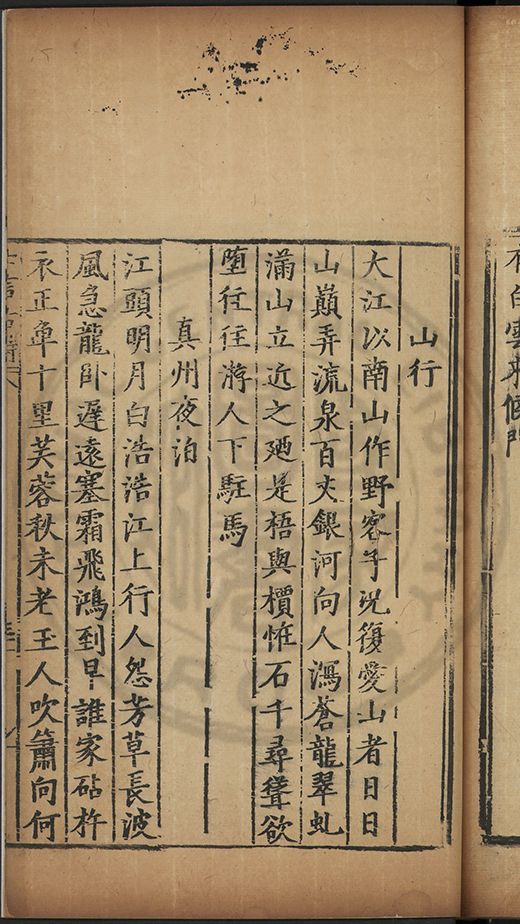 不白雲來 門
山行
大江以南山作野客子況復愛山者日日
山巔弄流泉百丈銀河向人瀉蒼龍翠虬
滿山立近之廼是梧與檟恠石千尋聳欲
墮往往游人下駐馬
真州夜泊
江頭明月白浩浩江上行人怨芳草長波
風急龍卧遲遠塞霜飛鴻到早誰家砧杵
衣正單十里芙蓉秋未老王人吹簫向何